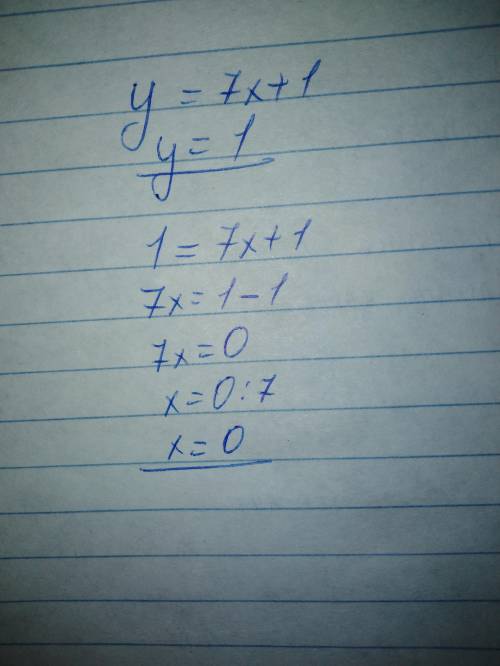 y = 7x+1
y = 1
1 = 7x+1
7x = 1-1
7x = 0
x = 0:7
x = 0